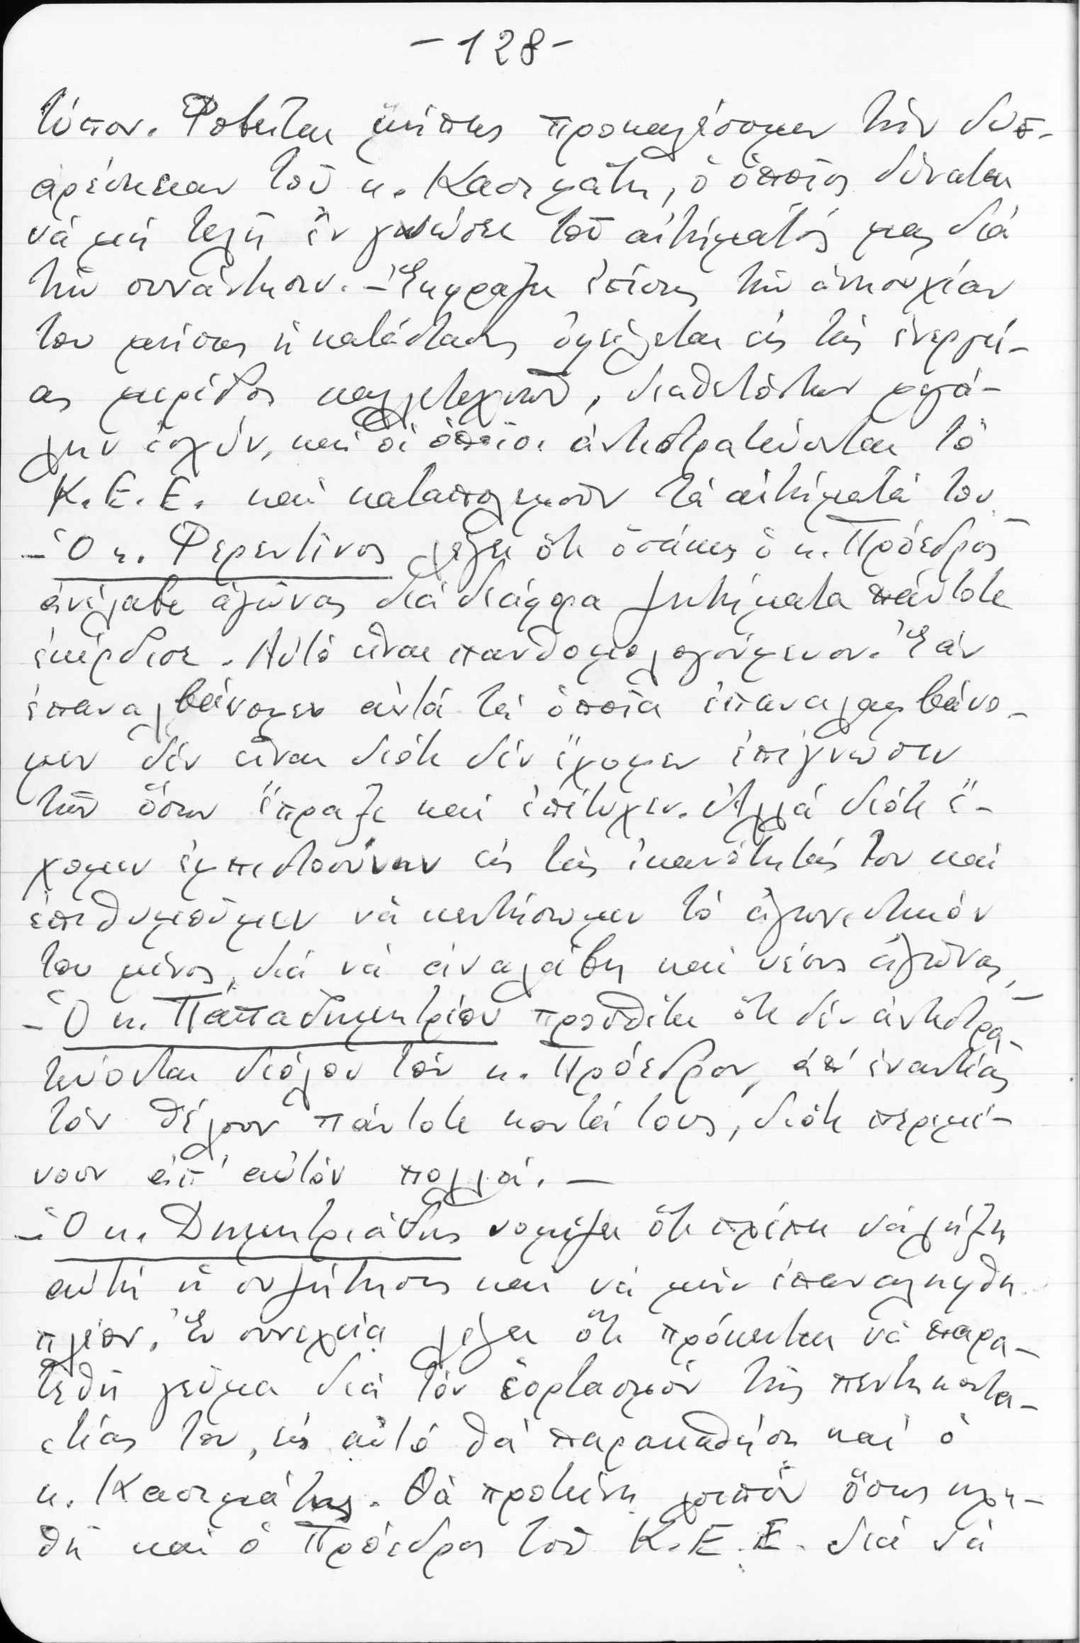 -128-
τύπον. Φοβεῖται μήπως προκαλέσωμεν τὴν δυσ-
αρέσκειαν τοῦ κ. Κασιμάτη, ὁ ὁποῖος δύναται
νά μή τελῇ ἐν γνώσει τοῦ αἰτήματός μας διά
τήν συνάντησιν. - Ἐκφράζει ἐπίσης τὴν ἀνησυχίαν
του μήπως ἡ κατάστασις ὀφείλεται εἰς τάς ἐνεργεί-
ας μερίδος καλλιτεχνῶν, διαθετόντων μεγά-
λην ἰσχύν, καί οἱ ὁποῖοι ἀντιστρατεύονται τό
Κ.Ε.Ε. καί καταπολεμοῦν τά αἰτήματά του.
- Ὁ κ. Φερεντῖνος λέγει ὅτι ὁσάκις ὁ κ. Πρόεδρος
ἀνέλαβε ἀγῶνας διά διάφορα ζητήματα πάντοτε
ἐκέρδισε. Αὐτό εἶναι πανθομολογούμενον. Ἐάν
ἐπαναλβάνομεν αὐτά τά ὁποῖα ἐπαναλαμβάνο-
μεν δέν εἶναι διότι δέν ἔχομεν ἐπίγνωσιν
τῶν ὅσων ἔπραξε καί ἐπέτυχεν. Ἀλλά διότι ἔ-
χομεν ἐμπιστοσύνην εἰς τάς ἱκανότητάς του καί
ἐπιθυμοῦμεν νὰ κεντήσωμεν τό ἀγωνιστικόν
του μένος, διά νά ἀναλάβῃ καί νέους ἀγῶνας.
- Ὁ κ. Παπαδημητρίου προσθέτει ὅτι δέν ἀντιστρα-
τεύονται διόλου τόν κ. Πρόεδρον, ἀπ' ἐναντίας
τόν θέλουν πάντοτε κοντά τους, διότι περιμέ-
νουν ἀπ' αὐτόν πολλά. -
- Ὁ κ. Δημητριάδης νομίζει ὅτι πρέπει νά λήξῃ
αὐτή ἡ συζήτησις καί νά μήν ἐπαναληφθῇ
πλέον. Ἐν συνεχείᾳ λέγει ὅτι πρόκειται νά παρα-
τεθῇ γεῦμα διά τόν ἑορτασμόν τῆς πεντηκοντα-
ετίας του, εἰς αὐτό θά παρακαθήσῃ καί ὁ
κ. Κασιμάτης. Θά προτείνῃ λοιπόν ὅπως κλη-
θῇ καί ὁ Πρόεδρος τοῦ Κ.Ε.Ε. διά νά